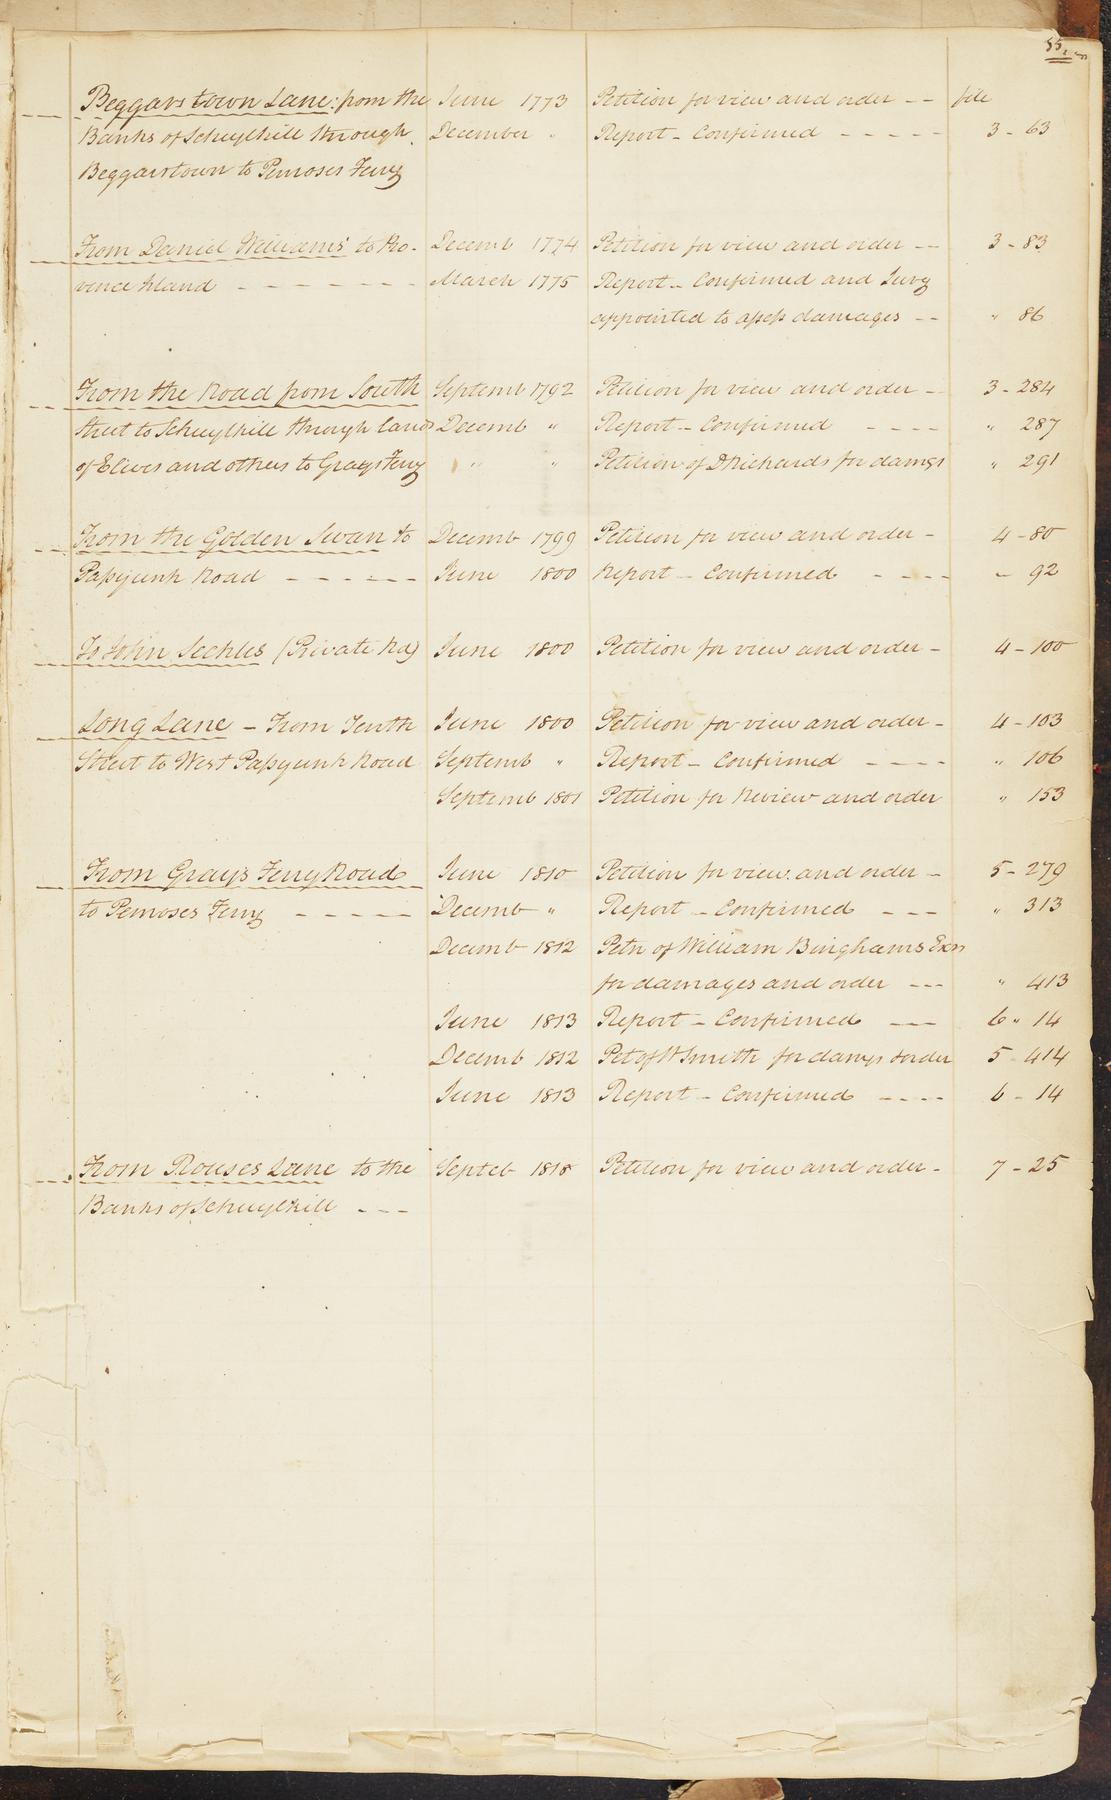 55
Beggarstown Lane: from the June 1773 Petition for view and order -- file
Banks of Schuylkill through December " Report - Confirmed ----- 3 - 63
Beggarstown to Penroses Ferry
From Daniel Williams' to Pro- Decemb 1774 Petition for view and order -- 3 - 83
vence Island ------ March 1775 Report - Confirmed and Jury
appointed to assess damages -- " 86
From the Road from South Septemb 1792 Petition for view and order - 3 - 284
Street to Schuylkill through lands Decemb " Report - Confirmed ---- " 287
of and others to Grays Ferry " " Petition of D Richards for damgs " 291
From the Golden Swan to Decemb 1799 Petition for view and order - 4 - 80
Passyunk Road ------ June 1800 Report - Confirmed ---- - 92
To John Seckles (Private Rd) June 1800 Petition for view and order - 4 - 100
Long Lane - From Tenth June 1800 Petition for view and order - 4 - 103
Street to West Passyunk Road Septemb " Report - Confirmed ---- " 106
Septemb 1801 Petition for Review and order " 153
From Grays Ferry Road June 1810 Petition for view and order - 5 - 279
to Penroses Ferry ----- Decemb " Report - Confirmed --- " 313
Decemb 1812 Petn of William Binghams Exrs
for damages and order --- " 413
June 1813 Report - Confirmed --- 6 " 14
Decemb 1812 Pet of W Smith for damgs & order 5 - 414
June 1813 Report - Confirmed ---- 6 - 14
From Rouses Lane to the Septeb 1818 Petition for view and order - 7 - 25
Banks of Schuylkill ---